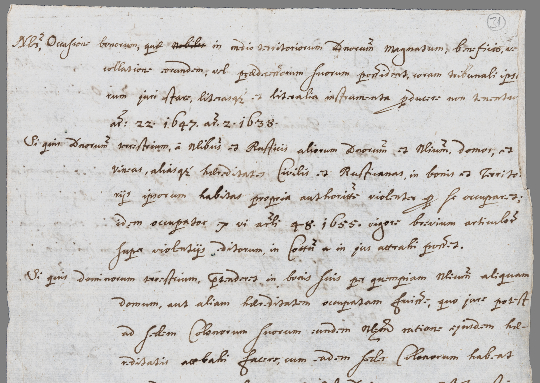 21
Occasione bonorum, quae nobiles in medio territoriorum Dnorum Magnatum, beneficio, ac
collatione eorundem, vel praedecessorum suorum possident, coram tribunali ipso
rum juri stare, literasq; et literalia instrumenta producere non tenentur
ar. 22. 1647. ar. 2. 1638.
Si quis Dnorum terrestrium, a Nlibus et Rusticis aliorum Dnorum et Nlium, domos, et
vineas, aliasq; hereditates Civiles et Rusticanas, in bonis et Territo
rijs ipsorum habitas propria authoritate violenter se occuparet;
idem occupator vi arti 48. 1655. vigore brevium articulorum
super violentijs editorum, in in jus attrahi possit.
Si quis dominorum terrestrium, praetenderet in locis suis per quempiam Nlium aliquam
domum, aut aliam hereditatem occupatam fuisse, quo jure potest
ad sedem Colonorum suorum eundem ratione ejusdem hae
reditatis attrahi facere, cum eadem sedes Colonorum habeat